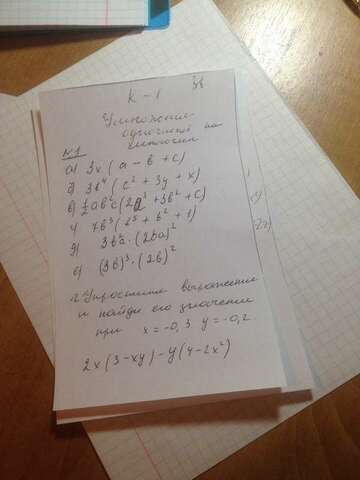 К-1
Умножение
одночлена на
многочлен
№1
а) 3x(a - b + c)
б) 3b⁴(c² + 3y + x)
в) ½ab²c(2a³ + 3b² + c)
г) 7b³(b⁵ + b² + 1)
д) 3b²a · (2ba)²
е) (3b)³ · (2b)²
2. Упростите выражение
и найди его значение
при x = -0,3 y = -0,2
2x(3 - xy) - y(4 - 2x²)